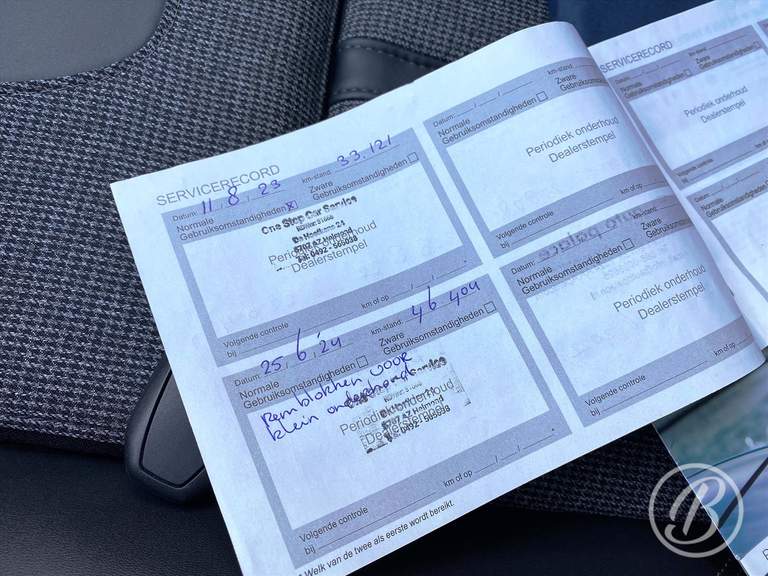 SERVICERECORD
Datum: 11, 8, 23 km-stand: 33.121
Normale Gebruiksomstandigheden X Zware Gebruiksomstandigheden
One Stop Car Service
5707 AZ Helmond
Tel: 0492 - 565038
Periodiek onderhoud
Dealerstempel
Volgende controle
bij km of op / /
Datum: 25, 6, '24 km-stand: 46.404
Normale Gebruiksomstandigheden Zware Gebruiksomstandigheden
Remblokken voor
klein onderhoud
Periodiek onderhoud
Dealerstempel
5707 AZ Helmond
0492 - 565038
Volgende controle
bij km of op / /
* Welk van de twee als eerste wordt bereikt.
Datum: / / km-stand:
Normale Gebruiksomstandigheden Zware Gebruiksomstandigheden
Periodiek onderhoud
Dealerstempel
Volgende controle
bij km of op / /
Datum: / / km-stand:
Normale Gebruiksomstandigheden Zware Gebruiksomstandigheden
Periodiek onderhoud
Dealerstempel
Volgende controle
bij km of op / /
SERVICERECORD
Datum:
Normale
Gebruiksomstandigheden
Periodiek onderhoud
Dealerstempel
Volgende controle
bij
Datum:
Normale